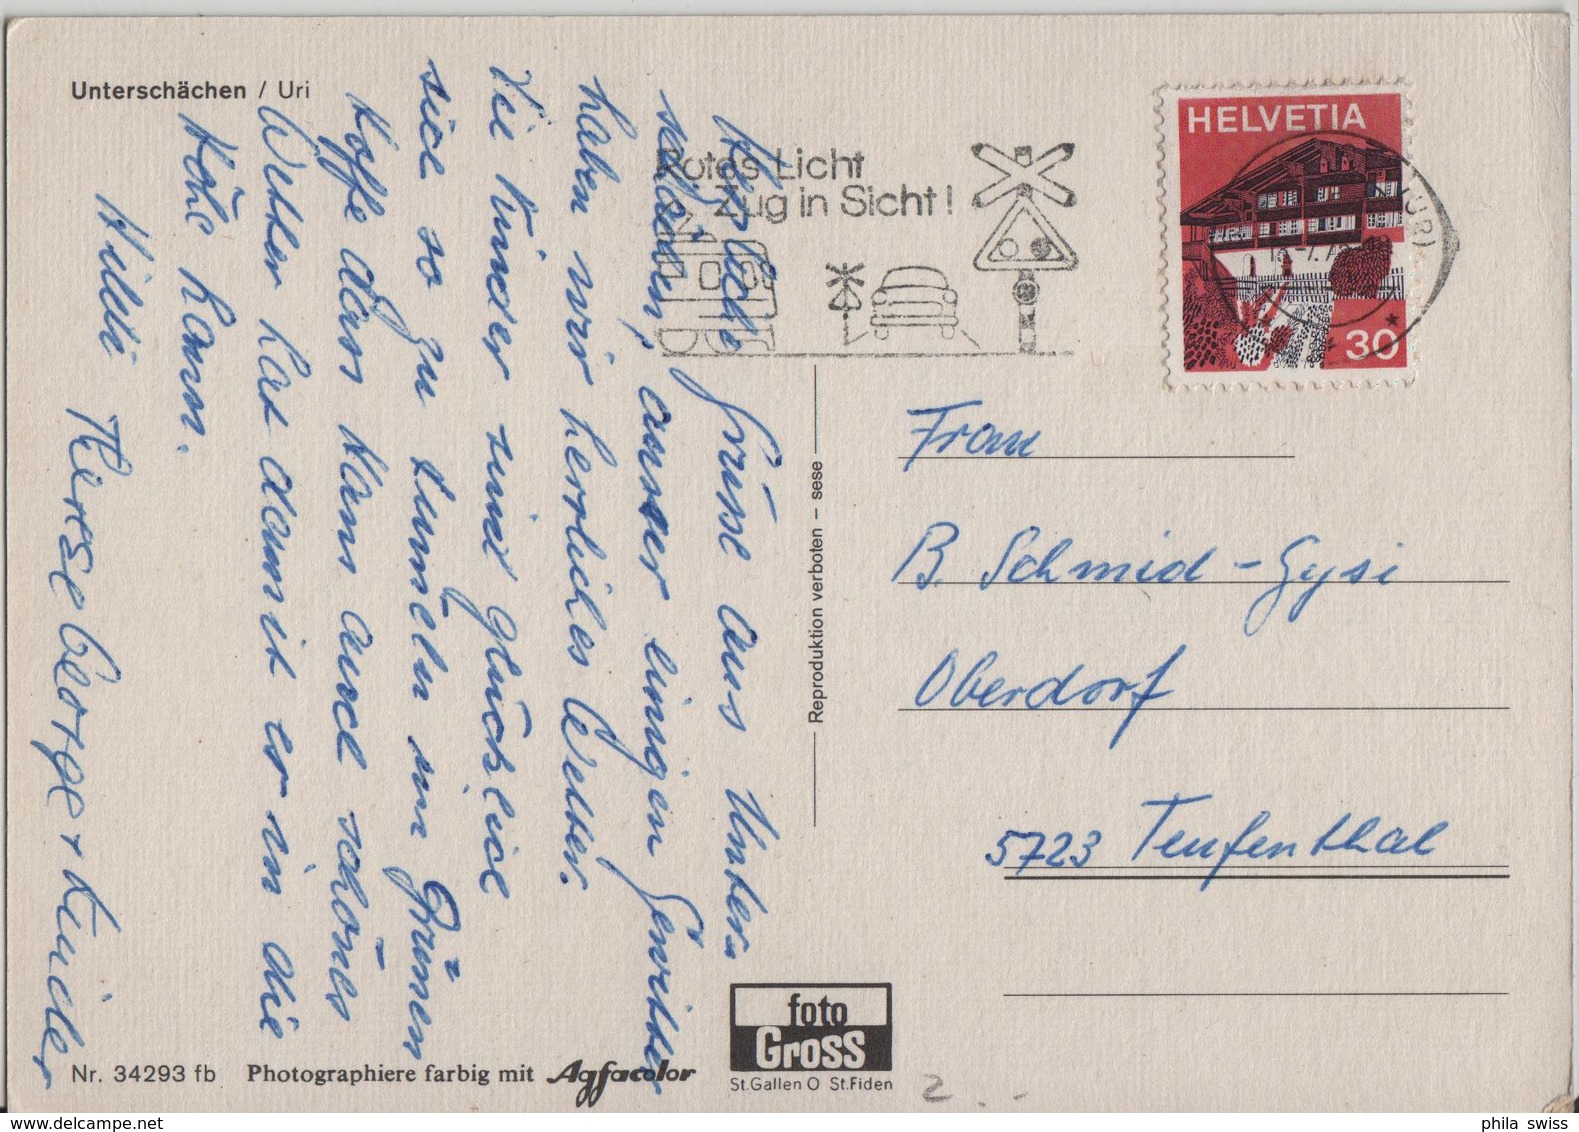 Unterschächen / Uri
Herzliche Grüsse aus Unter-
schächen, ausser einigen Gewitter
haben wir herrliches Wetter.
Die Kinder sind glücklich
sich so zu tummeln im Grünen
Hoffe dass Hans auch schönes
Wetter hat damit er in die
Höhe kann.
Willi Therese George + Kinder
Nr. 34293 fb Photographiere farbig mit Agfacolor
Reproduktion verboten – sese
foto
Gross
St.Gallen O St.Fiden
Rotes Licht
Zug in Sicht!
HELVETIA
30
(UR)
Frau
B. Schmid-Gysi
Oberdorf
5723 Teufenthal
2.-
phila swiss